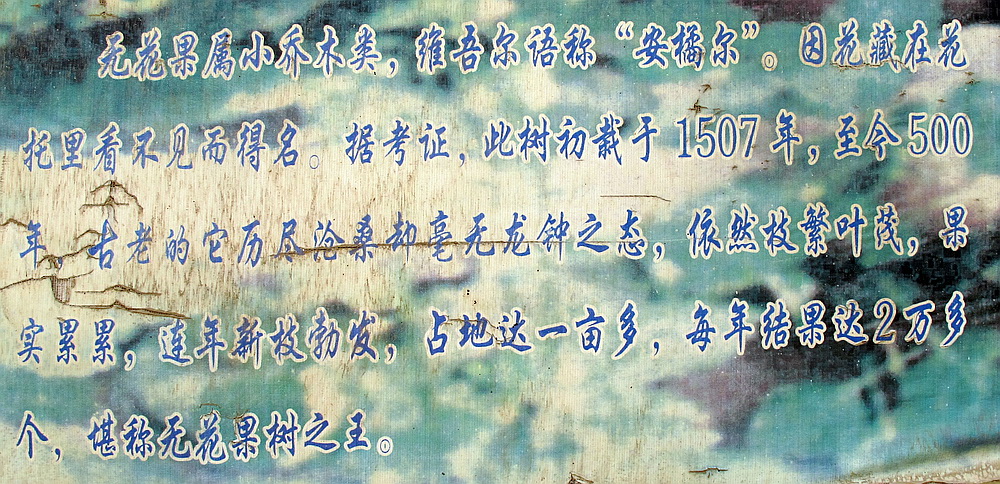 无花果属小乔木类，维吾尔语称“安橘尔”。因花藏在花
托里看不见而得名。据考证，此树初栽于1507年，至今500
年，古老的它历尽沧桑却毫无龙钟之态，依然枝繁叶茂，果
实累累，连年新枝勃发，占地达一亩多，每年结果达2万多
个，堪称无花果树之王。